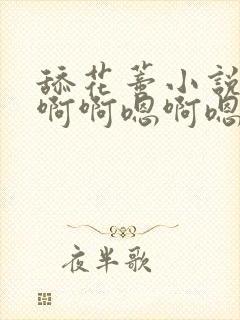 舔花蒂小说
啊啊嗯啊嗯
夜半歌